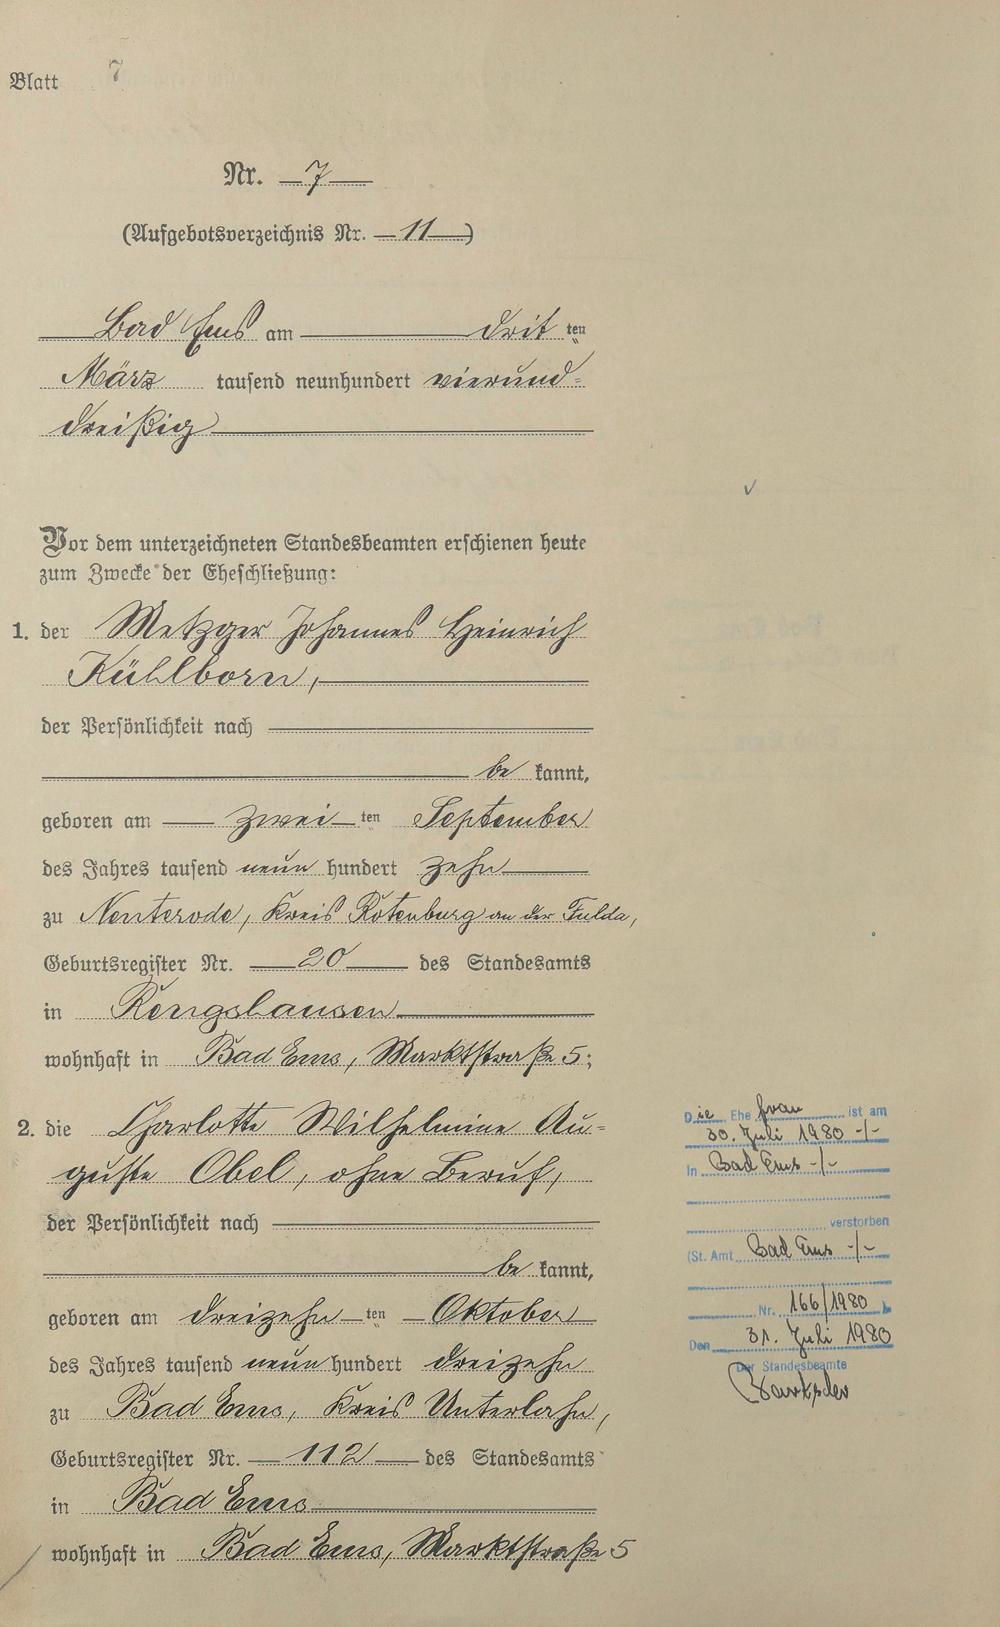 Blatt 7
Nr. 7
(Aufgebotsverzeichnis Nr. 11)
Bad Ems am dritten
März tausend neunhundert vierund=
dreißig
Vor dem unterzeichneten Standesbeamten erschienen heute
zum Zwecke der Eheschließung:
1. der Metzger Johannes Heinrich
Kühlborn,
der Persönlichkeit nach
bekannt,
geboren am zweiten September
des Jahres tausend neunhundert zehn
zu Nenterode, Kreis Rotenburg an der Fulda,
Geburtsregister Nr. 20 des Standesamts
in Rengshausen
wohnhaft in Bad Ems, Marktstraße 5;
2. die Charlotte Wilhelmine Au=
guste Obel, ohne Beruf,
der Persönlichkeit nach
bekannt,
geboren am dreizehnten Oktober
des Jahres tausend neunhundert dreizehn
zu Bad Ems, Kreis Unterlahn,
Geburtsregister Nr. 112 des Standesamts
in Bad Ems
wohnhaft in Bad Ems, Marktstraße 5
Die Ehefrau ist am
30. Juli 1980 -/-
In Bad Ems -/-
verstorben
(St. Amt Bad Ems -/-
Nr. 166/1980 )
Den 31. Juli 1980
Der Standesbeamte